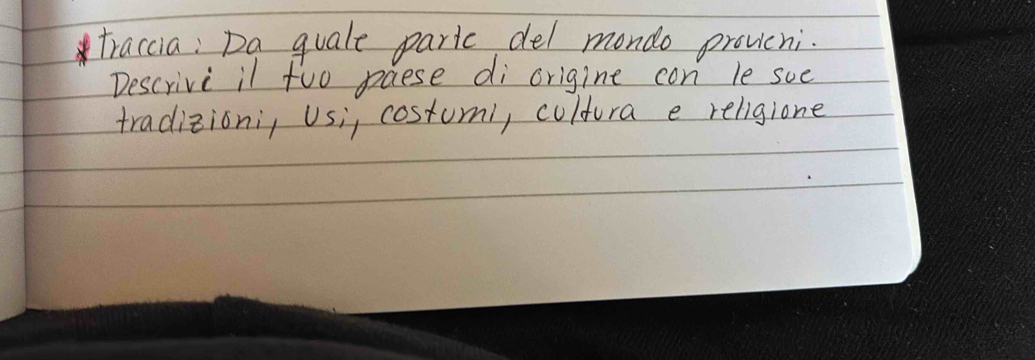 * Traccia: Da quale parte del mondo provieni.
Descrivi il tuo paese di origine con le sue
tradizioni, usi, costumi, cultura e religione